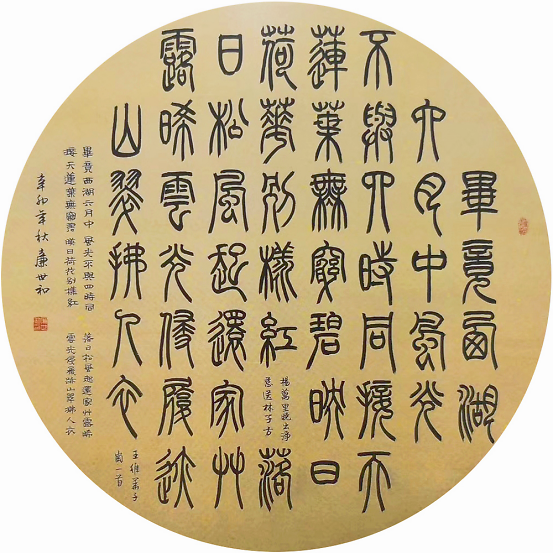 畢竟西湖
六月中風光
不與四時同接天
蓮葉無窮碧映日
荷華別樣紅
楊萬里曉出淨
慈送林子方
落
日松風起還家艸
露晞雲光侵履迹
山翠拂人衣
王維華子
崗一首
畢竟西湖六月中 風光不與四時同
接天蓮葉無窮碧 映日荷花別樣紅
落日松風起還家艸露晞
雲光侵履跡山翠拂人衣
辛卯年秋廉世和